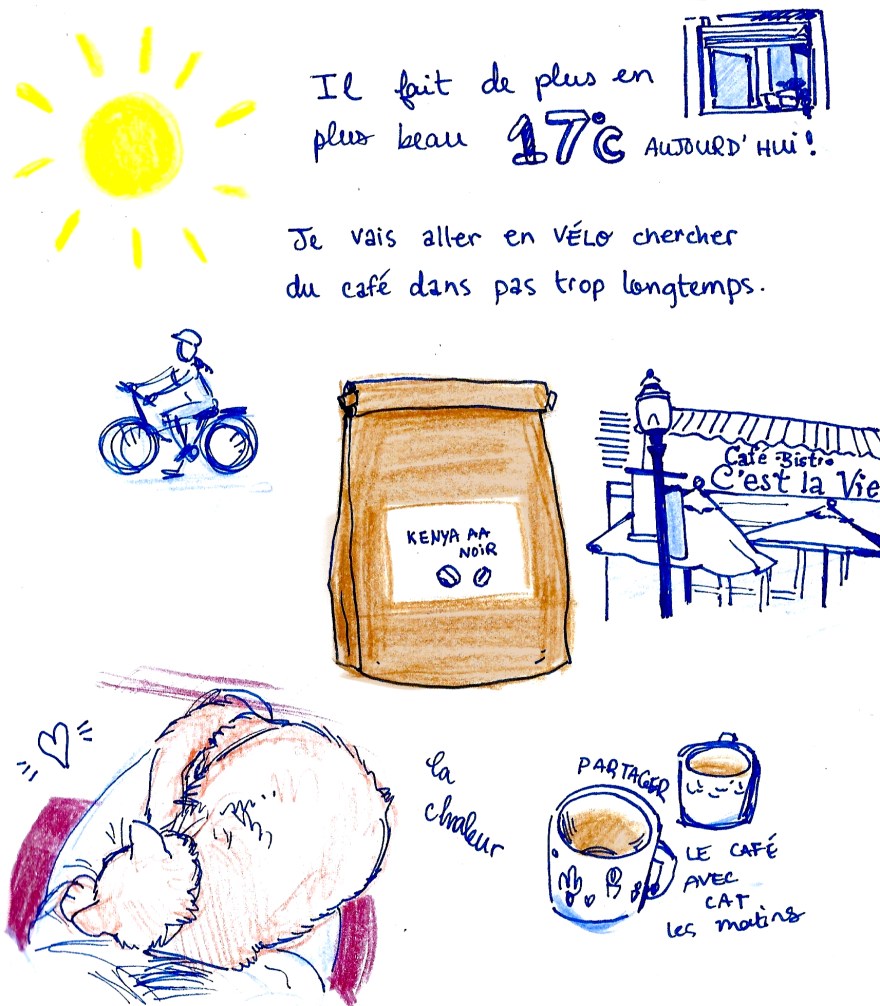 Il fait de plus en
plus beau 17°C AUJOURD'HUi!
Je vais aller en VÉLO chercher
du café dans pas trop longtemps.
Café-Bistro
C'est la Vie
KENYA AA
NOiR
la
chaleur
PARTAGER
LE CAFÉ
AVEC
CAT
les matins